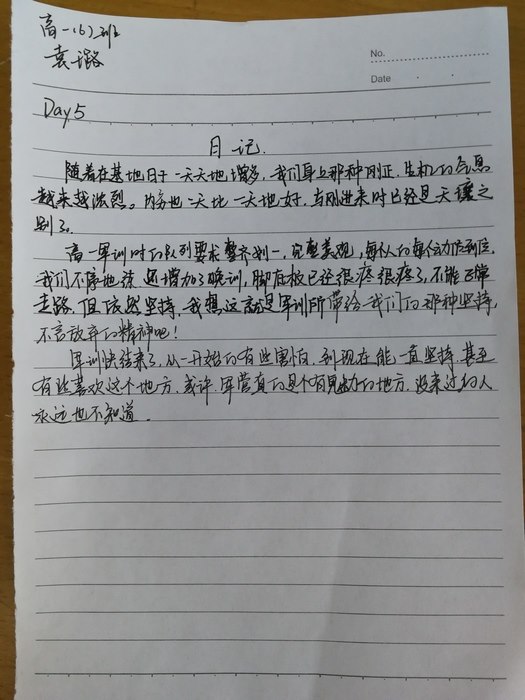 高一(6)班
袁璐
No.
Date
Day 5
日记
随着在基地日子一天天地增多，我们身上那种刚正、生机的气息
越来越浓烈。内务也一天比一天地好，与刚进来时已经是天壤之
别了。
高一军训时的队列要求整齐划一，完整美观，每个人的每个动作到位，
我们不停地练，还增加了晚训，脚底板已经很疼很疼了，不能正常
走路，但依然坚持，我想这就是军训所带给我们的那种坚持，
不言放弃的精神吧！
军训快结束了，从一开始的有些害怕，到现在能一直坚持，甚至
有些喜欢这个地方，或许，军营真的是个有魅力的地方，没来过的人
永远也不知道.